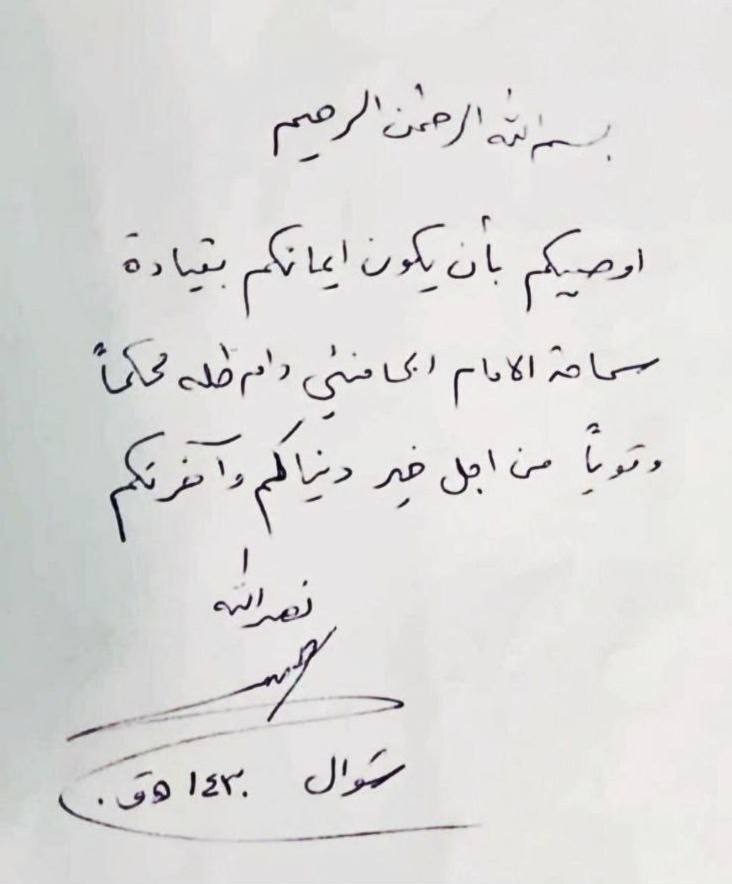 بسم الله الرحمٰن الرحيم
اوصيكم بأن يكون ايمانكم بقيادة
سماحة الامام الخامنئي دام ظله محكماً
وقوياً من اجل خير دنياكم وآخرتكم
نصر الله
شوال ١٤٣٠ هـ ق.